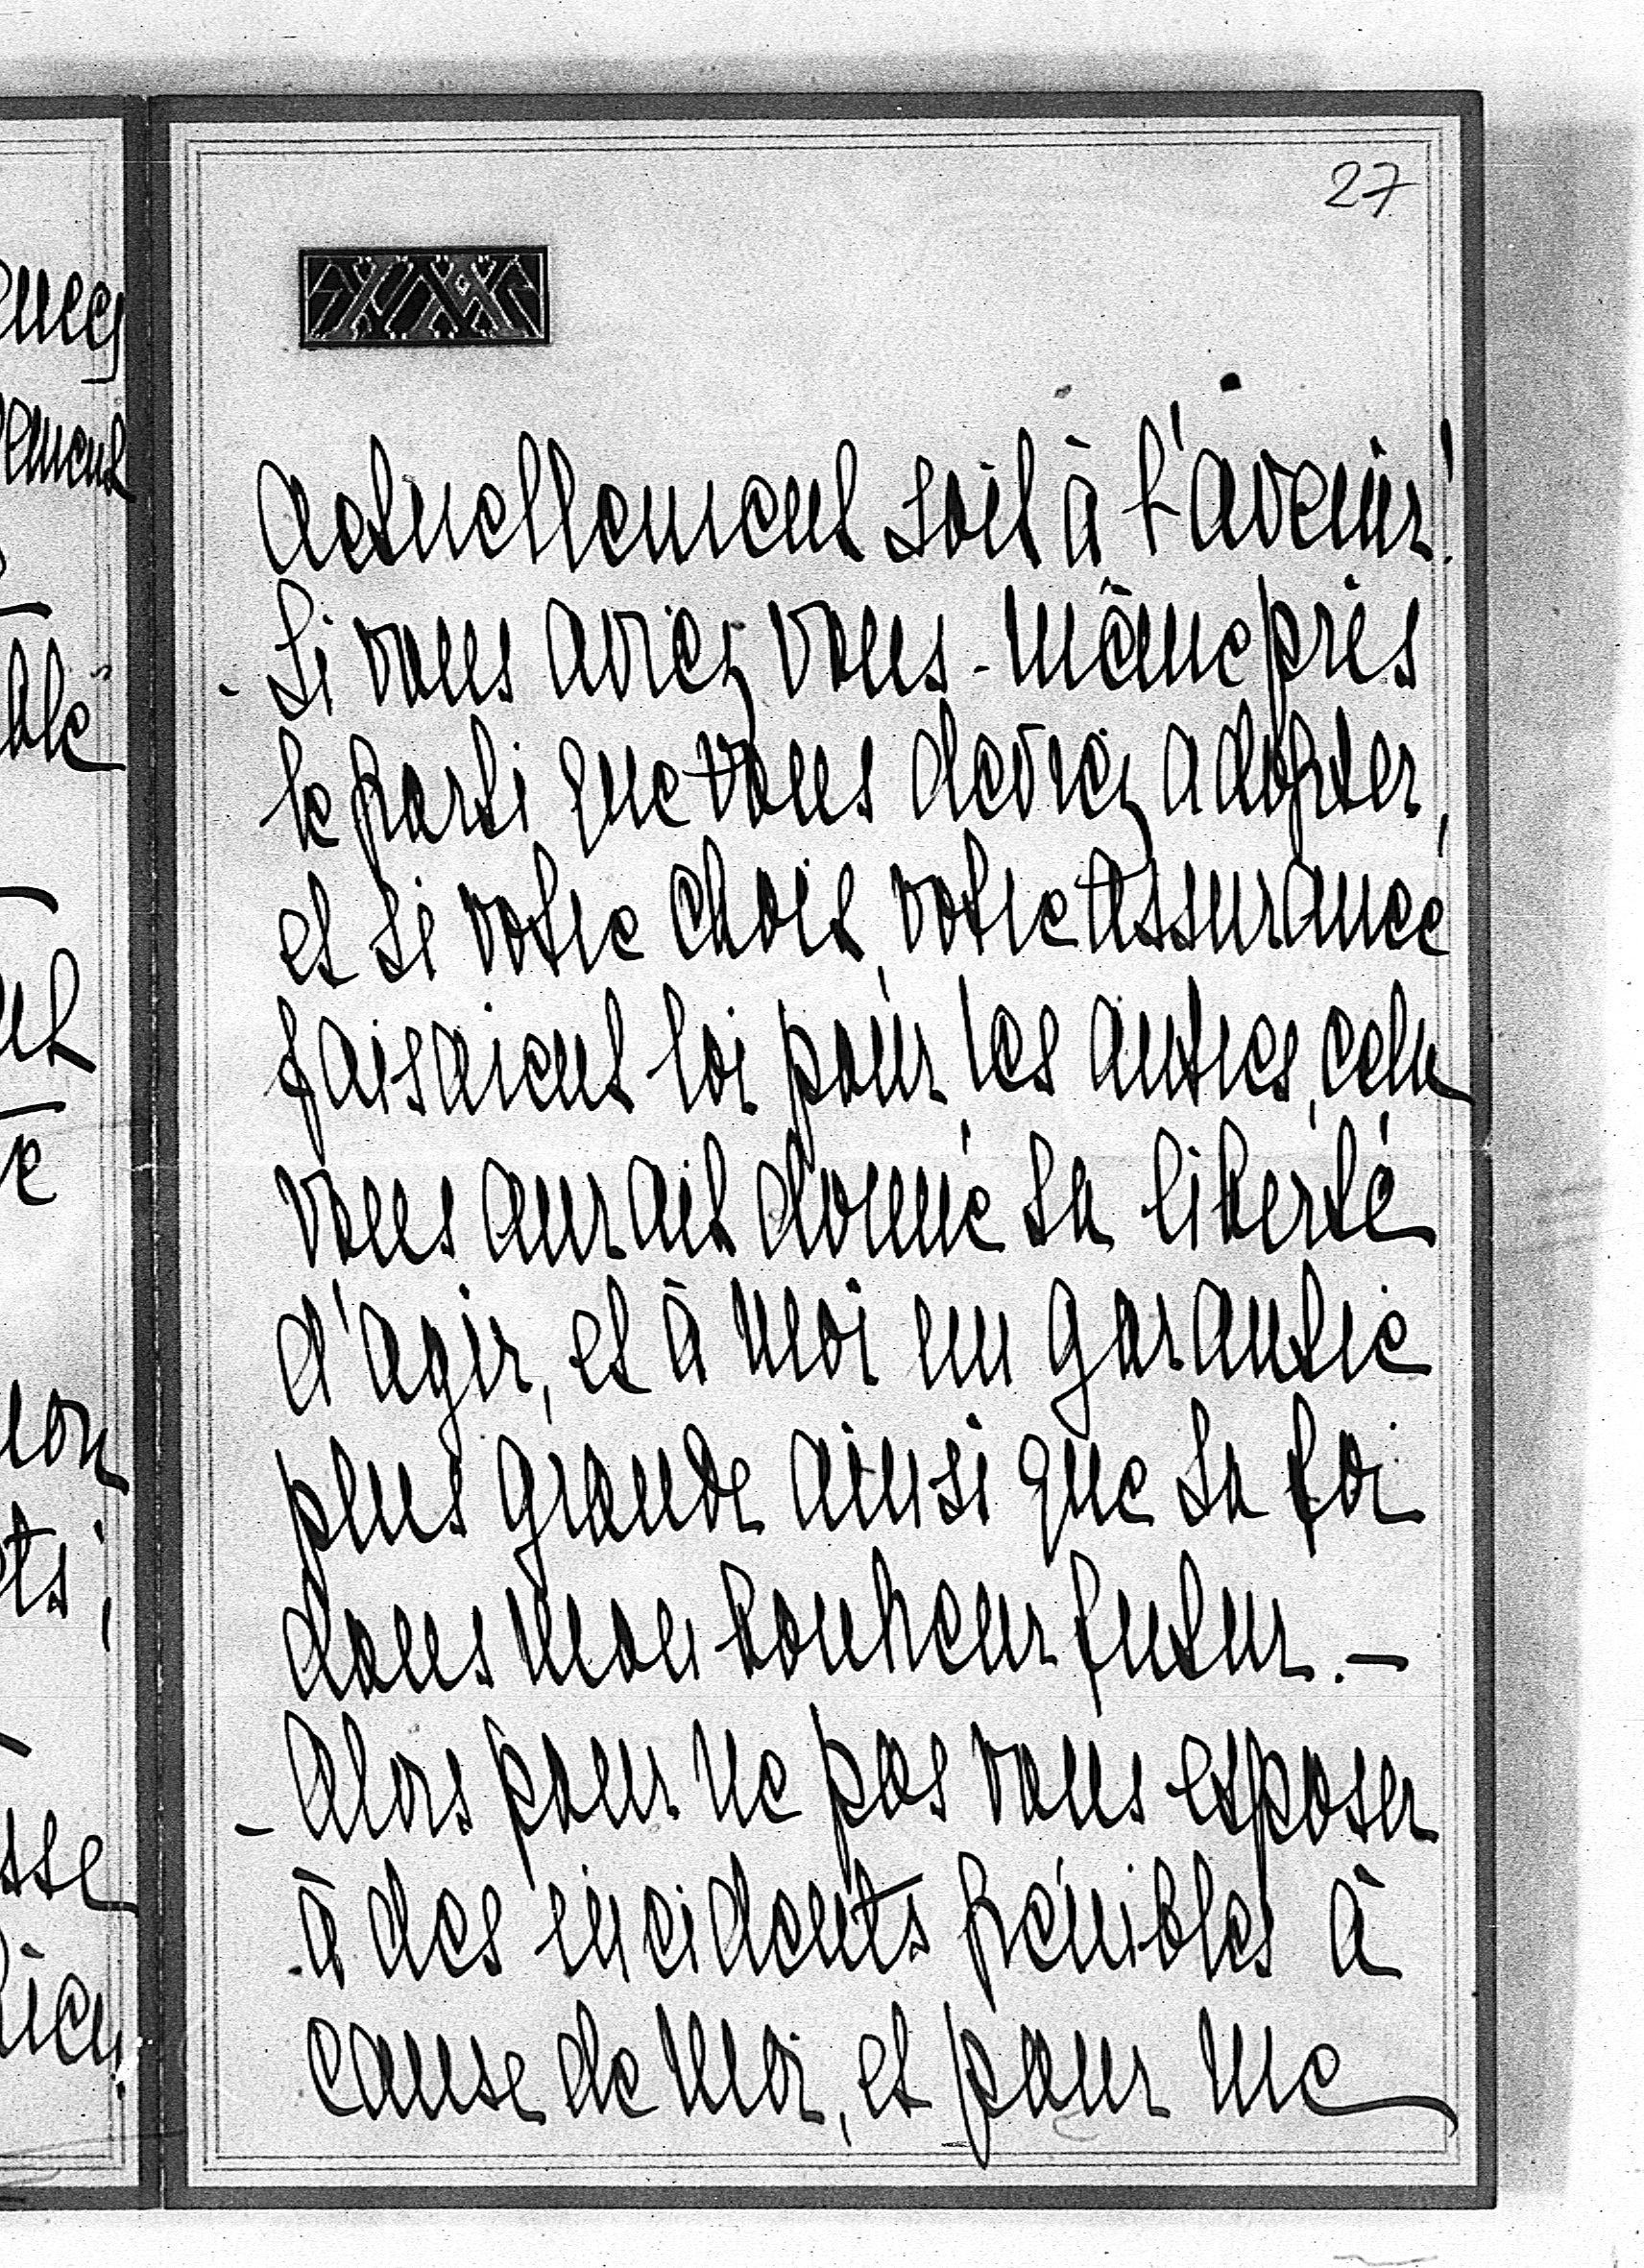 27
actuellement soit à l'avenir!
- Si vous aviez vous-même pris
le parti que vous devriez adopter,
et si votre choix, votre assurance
faisaient loi pour les autres, cela
vous aurait donné la liberté
d'agir, et à moi un garantie
plus grande ainsi que la foi
dans mon bonheur futur. —
- Alors pour ne pas vous exposer
à des incidents pénibles à
cause de moi, et pour me